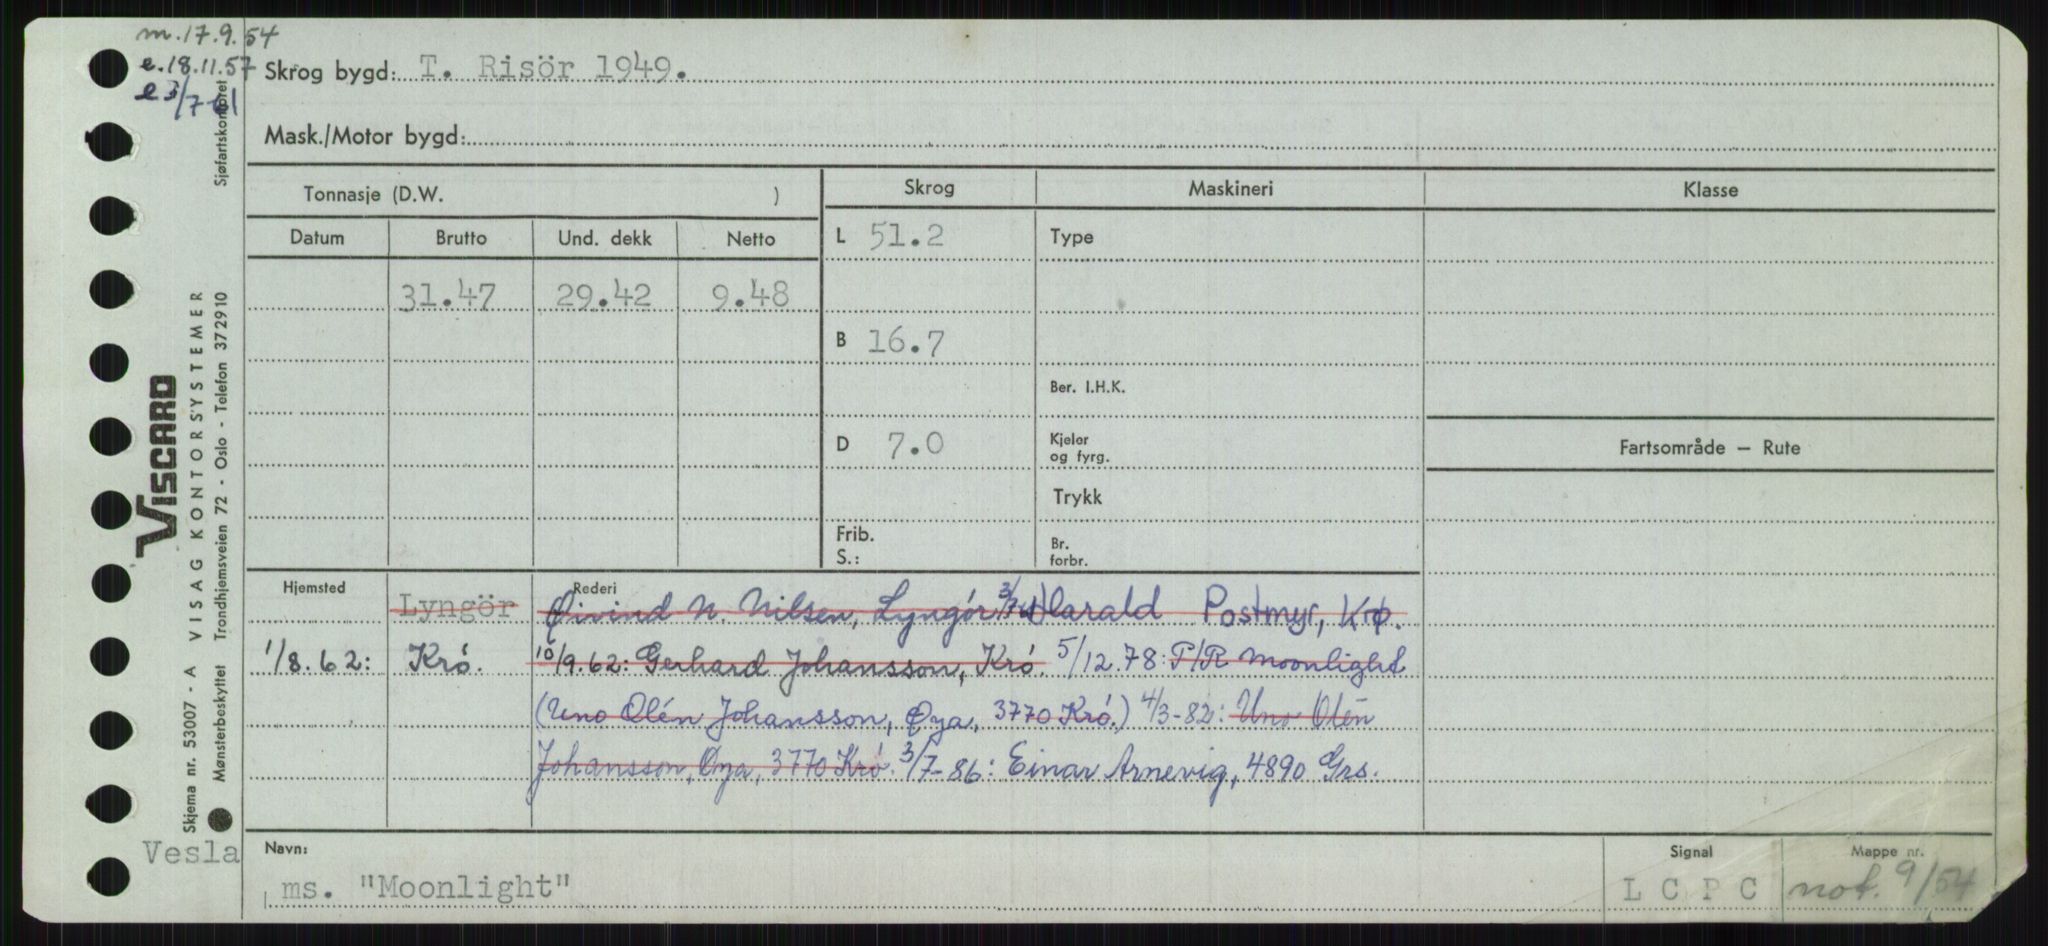 m. 17.9.54
e. 18.11.57
e 3/7 61
Skrog bygd: T. Risör 1949.
Mask./Motor bygd:
Tonnasje (D.W. )
Skrog
Maskineri
Klasse
Datum Brutto Und. dekk Netto
L 51.2
Type
31.47 29.42 9.48
B 16.7
Ber. I.H.K.
D 7.0
Kjeler
og fyrg.
Fartsområde — Rute
Trykk
Frib.
S.:
Br.
forbr.
Hjemsted Lyngör
Rederi
Øivind N. Nilsen, Lyngör 3/7 61 Harald Postmyr, Krø.
1/8.62: Krö. 10/9.62: Gerhard Johansson, Krö. 5/12.78: P/R Moonlight
(Uno Olén Johansson, Øya, 3770 Krö.) 4/3-82: Uno Olén
Johansson, Øya, 3770 Krö. 3/7-86: Einar Arnevig, 4890 Grs.
Navn:
ms. "Moonlight"
Signal
L C P C
Mappe nr.
not. 9/54
Vesla
VISCARD
VISAG KONTORSYSTEMER
Skjema nr. 53007 - A
Mønsterbeskyttet Trondhjemsveien 72 - Oslo - Telefon 372910
Sjøfartskontoret